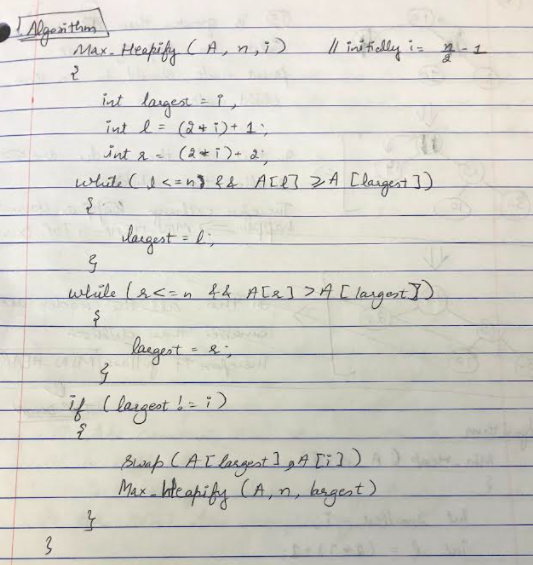 Algorithm
Max_Heapify (A, n, i) // initially i = n/2 - 1
{
int largest = i,
int l = (2*i)+1;
int r = (2*i)+2;
while (l <= n && A[l] ≥ A[largest])
{
largest = l;
}
while (r <= n && A[r] > A[largest])
{
largest = r;
}
if (largest != i)
{
swap (A[largest], A[i])
Max_Heapify (A, n, largest)
}
}